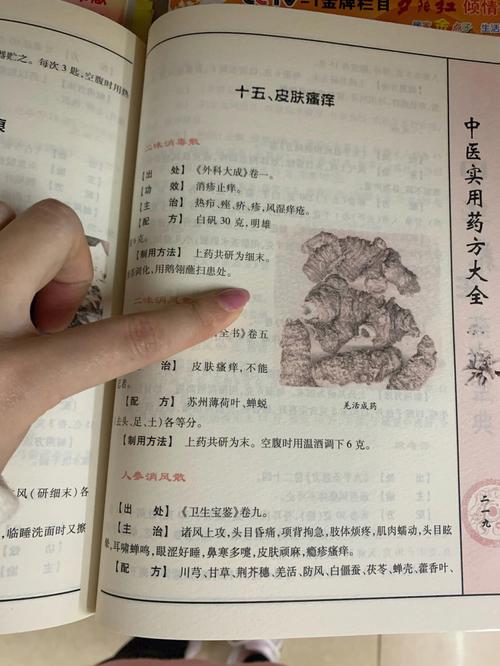 CCTV-1金牌栏目
夕阳红
倾情
生活
器贮之。每次3匙,空腹时用热
十五、皮肤瘙痒
二味消毒散
【出 处】《外科大成》卷一。
【功 效】消疹止痒。
【主 治】热疖、痤、疥、疹,风湿痒疮。
【配 方】白矾30克,明雄
6克。
【制用方法】上药共研为细末。
调化,用鹅翎蘸扫患处。
二味消风散
全书》卷五
治】皮肤瘙痒,不能
【配 方】苏州薄荷叶、蝉蜕
(去头、足、土)各等分。
【制用方法】上药共研为末。空腹时用温酒调下6克。
羌活成药
人参消风散
【出 处】《卫生宝鉴》卷九。
【主 治】诸风上攻,头目昏痛,项背拘急,肢体烦疼,肌肉蠕动,头目眩
晕,耳啸蝉鸣,眼涩好睡,鼻寒多嚏,皮肤顽麻,瘾疹瘙痒。
【配 方】川芎、甘草、荆芥穗、羌活、防风、白僵蚕、茯苓、蝉壳、藿香叶、
风(研细末)各
临睡洗面时又擦
中医实用药方大全
二一九